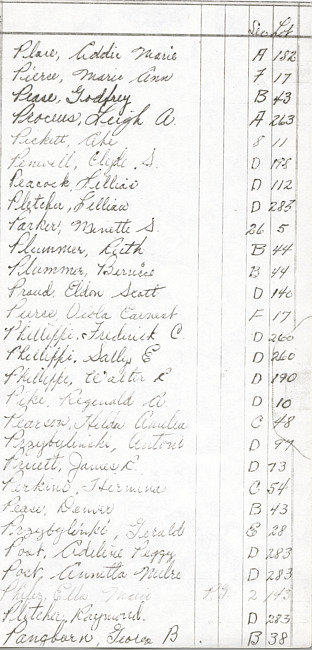 Sec Lot
Place, Addie Marie A 182
Pierce, Marie Ann F 17
Pease, Godfrey B 43
Proceus, Leigh A. A 263
Pickett, Abe 8 11
Penwell, Clyde S. D
Peacock, Lillian D 112
Pletcher, Lillian D 283
Parker, Minette S. 26 5
Plummer, Keith B 44
Plummer, Bernice B 44
Proud, Eldon Scott D 140
Pierce, Viola Earnest F 17
Phillippi, Frederick C D 260
Phillippi, Sally E D 260
Phillippi, Walter R D 190
Pike, Reginald A D 10
Pearson, Hilda Amelia C 48
Przybylinski, Antoni D 97
Pruett, James R. D 73
Perkins, Hermina C 54
Pease, Denver B 43
Przybylinski, Gerald E 28
Post, Adeline Peggy D 283
Post, Annetta D 283
Phifer, Ella Marie 2 143
Pletcher, Raymond. D 283
Pangborn, George B B 38